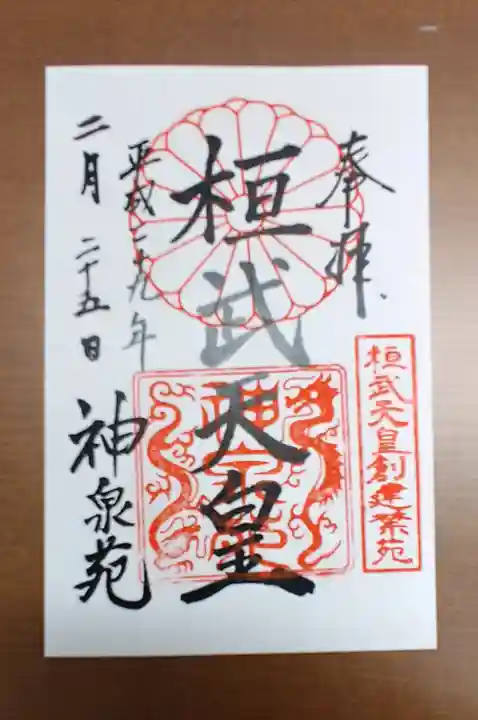 奉拝
桓武天皇創建禁苑
桓武天皇
平成二九年
二月二十五日
神泉苑